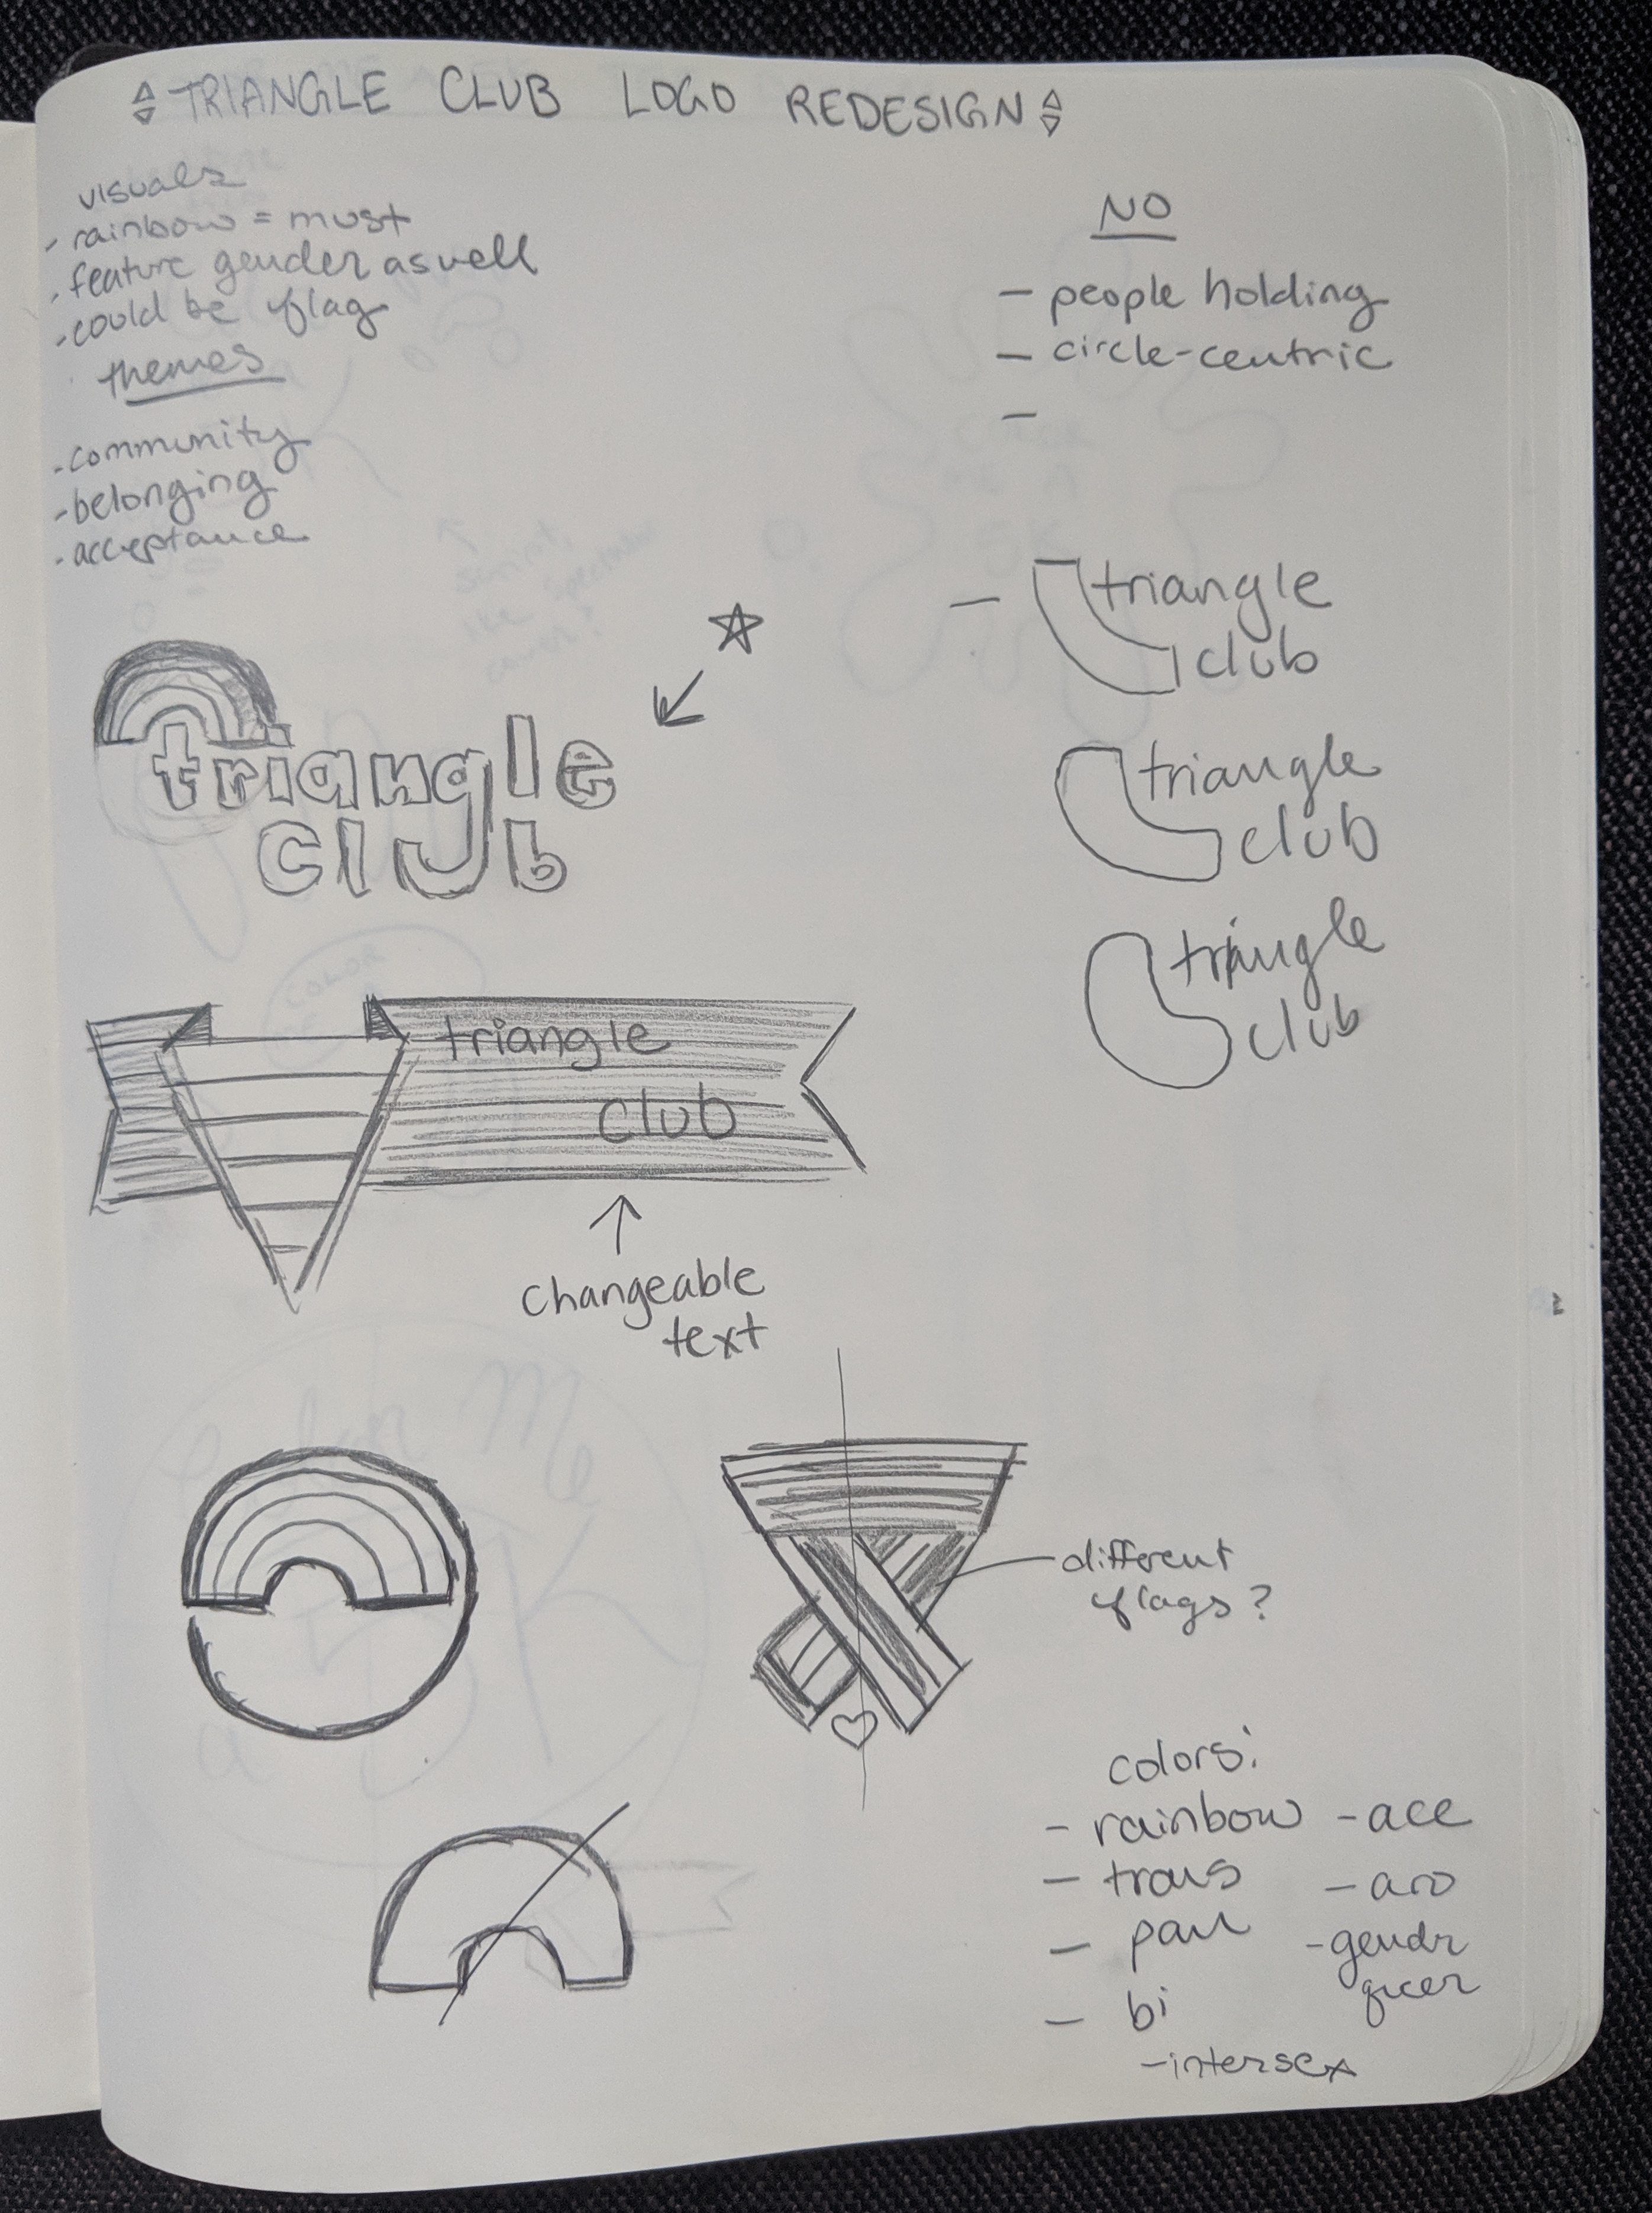 TRIANGLE CLUB LOGO REDESIGN
visuals
- rainbow = must
- feature gender as well
- could be flag
themes
- community
- belonging
- acceptance
NO
- people holding
- circle-centric
-
- triangle
club
triangle
club
triangle
club
triangle
club
triangle
club
changeable
text
different
flags?
colors:
- rainbow - ace
- trans - aro
- pan - gendr
qeer
- bi
- intersex